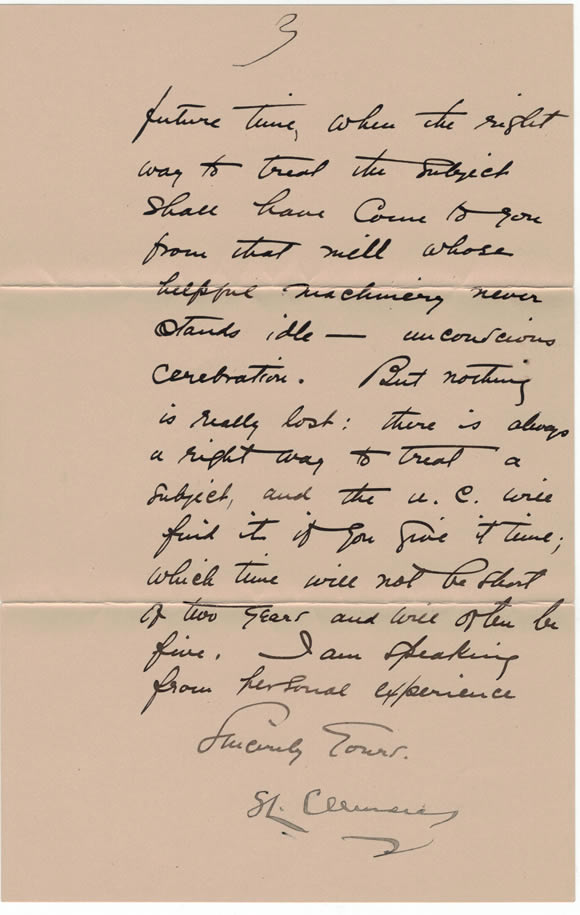 3
future time, when the right
way to treat the subject
shall have come to you
from that mill whose
helpful machinery never
stands idle — unconscious
cerebration. But nothing
is really lost: there is always
a right way to treat a
subject, and the u. c. will
find it if you give it time;
which time will not be short
of two years and will often be
five. I am speaking
from personal experience
Sincerely Yours.
SL. Clemens